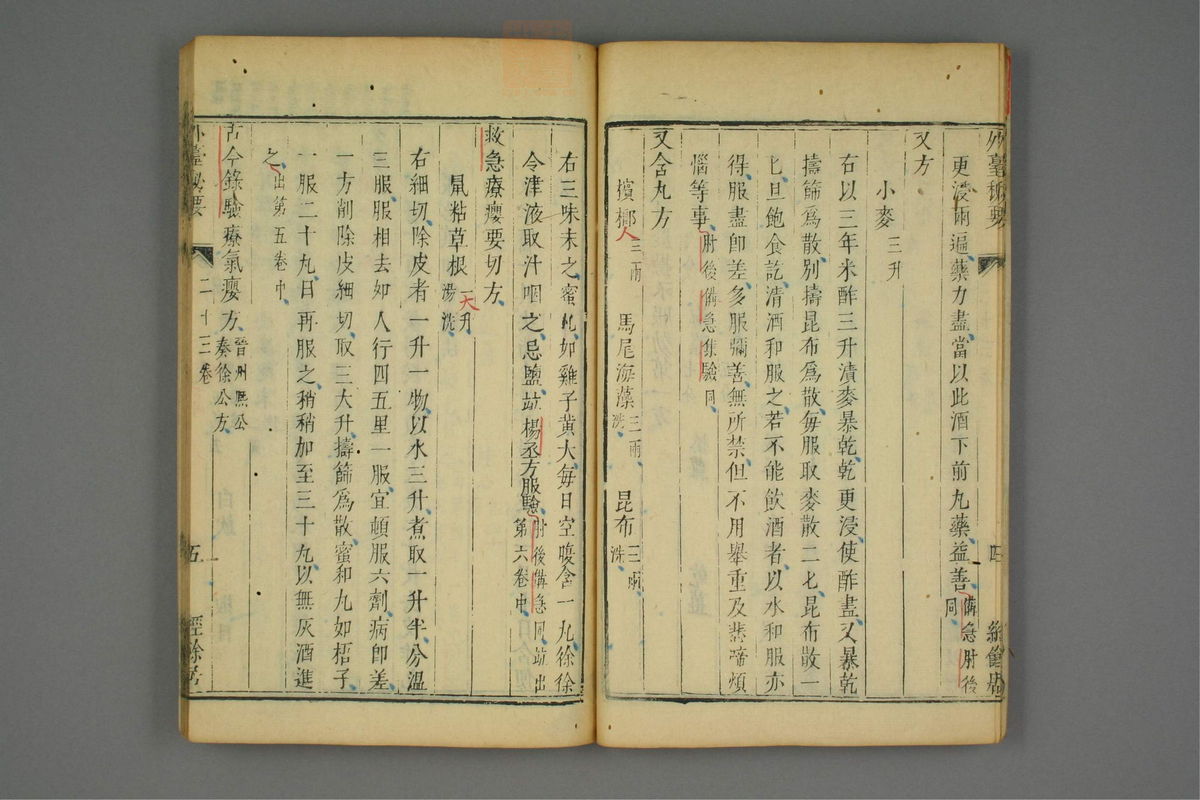 外臺秘要
四
經餘居
更浸兩遍藥力盡當以此酒下前丸藥益善備急肘後同
又方
小麥三升
右以三年米酢三升漬麥暴乾乾更浸使酢盡又暴乾
擣篩爲散別擣昆布爲散每服取麥散二匕昆布散一
匕旦飽食訖清酒和服之若不能飲酒者以水和服亦
得服盡卽差多服彌善無所禁但不用舉重及悲啼煩
惱等事肘後備急集驗同
又含丸方
檳榔三兩 馬尾海藻三兩洗 昆布三兩洗
右三味末之蜜丸如雞子黃大每日空腹含一丸徐徐
令津液取汁咽之忌鹽竝楊丞方服驗肘後備急同竝出第六卷中
救急療癭要切方
鼠粘草根一大升湯洗
右細切除皮者一升一物以水三升煮取一升半分溫
三服服相去如人行四五里一服宜頓服六劑病卽差
一方削除皮細切取三大升擣篩爲散蜜和丸如梧子
一服二十丸日再服之稍稍加至三十丸以無灰酒進
之出第五卷中
古今錄驗療氣癭方晉州熙公奏徐公方
外臺秘要
二十三卷
五
經餘居